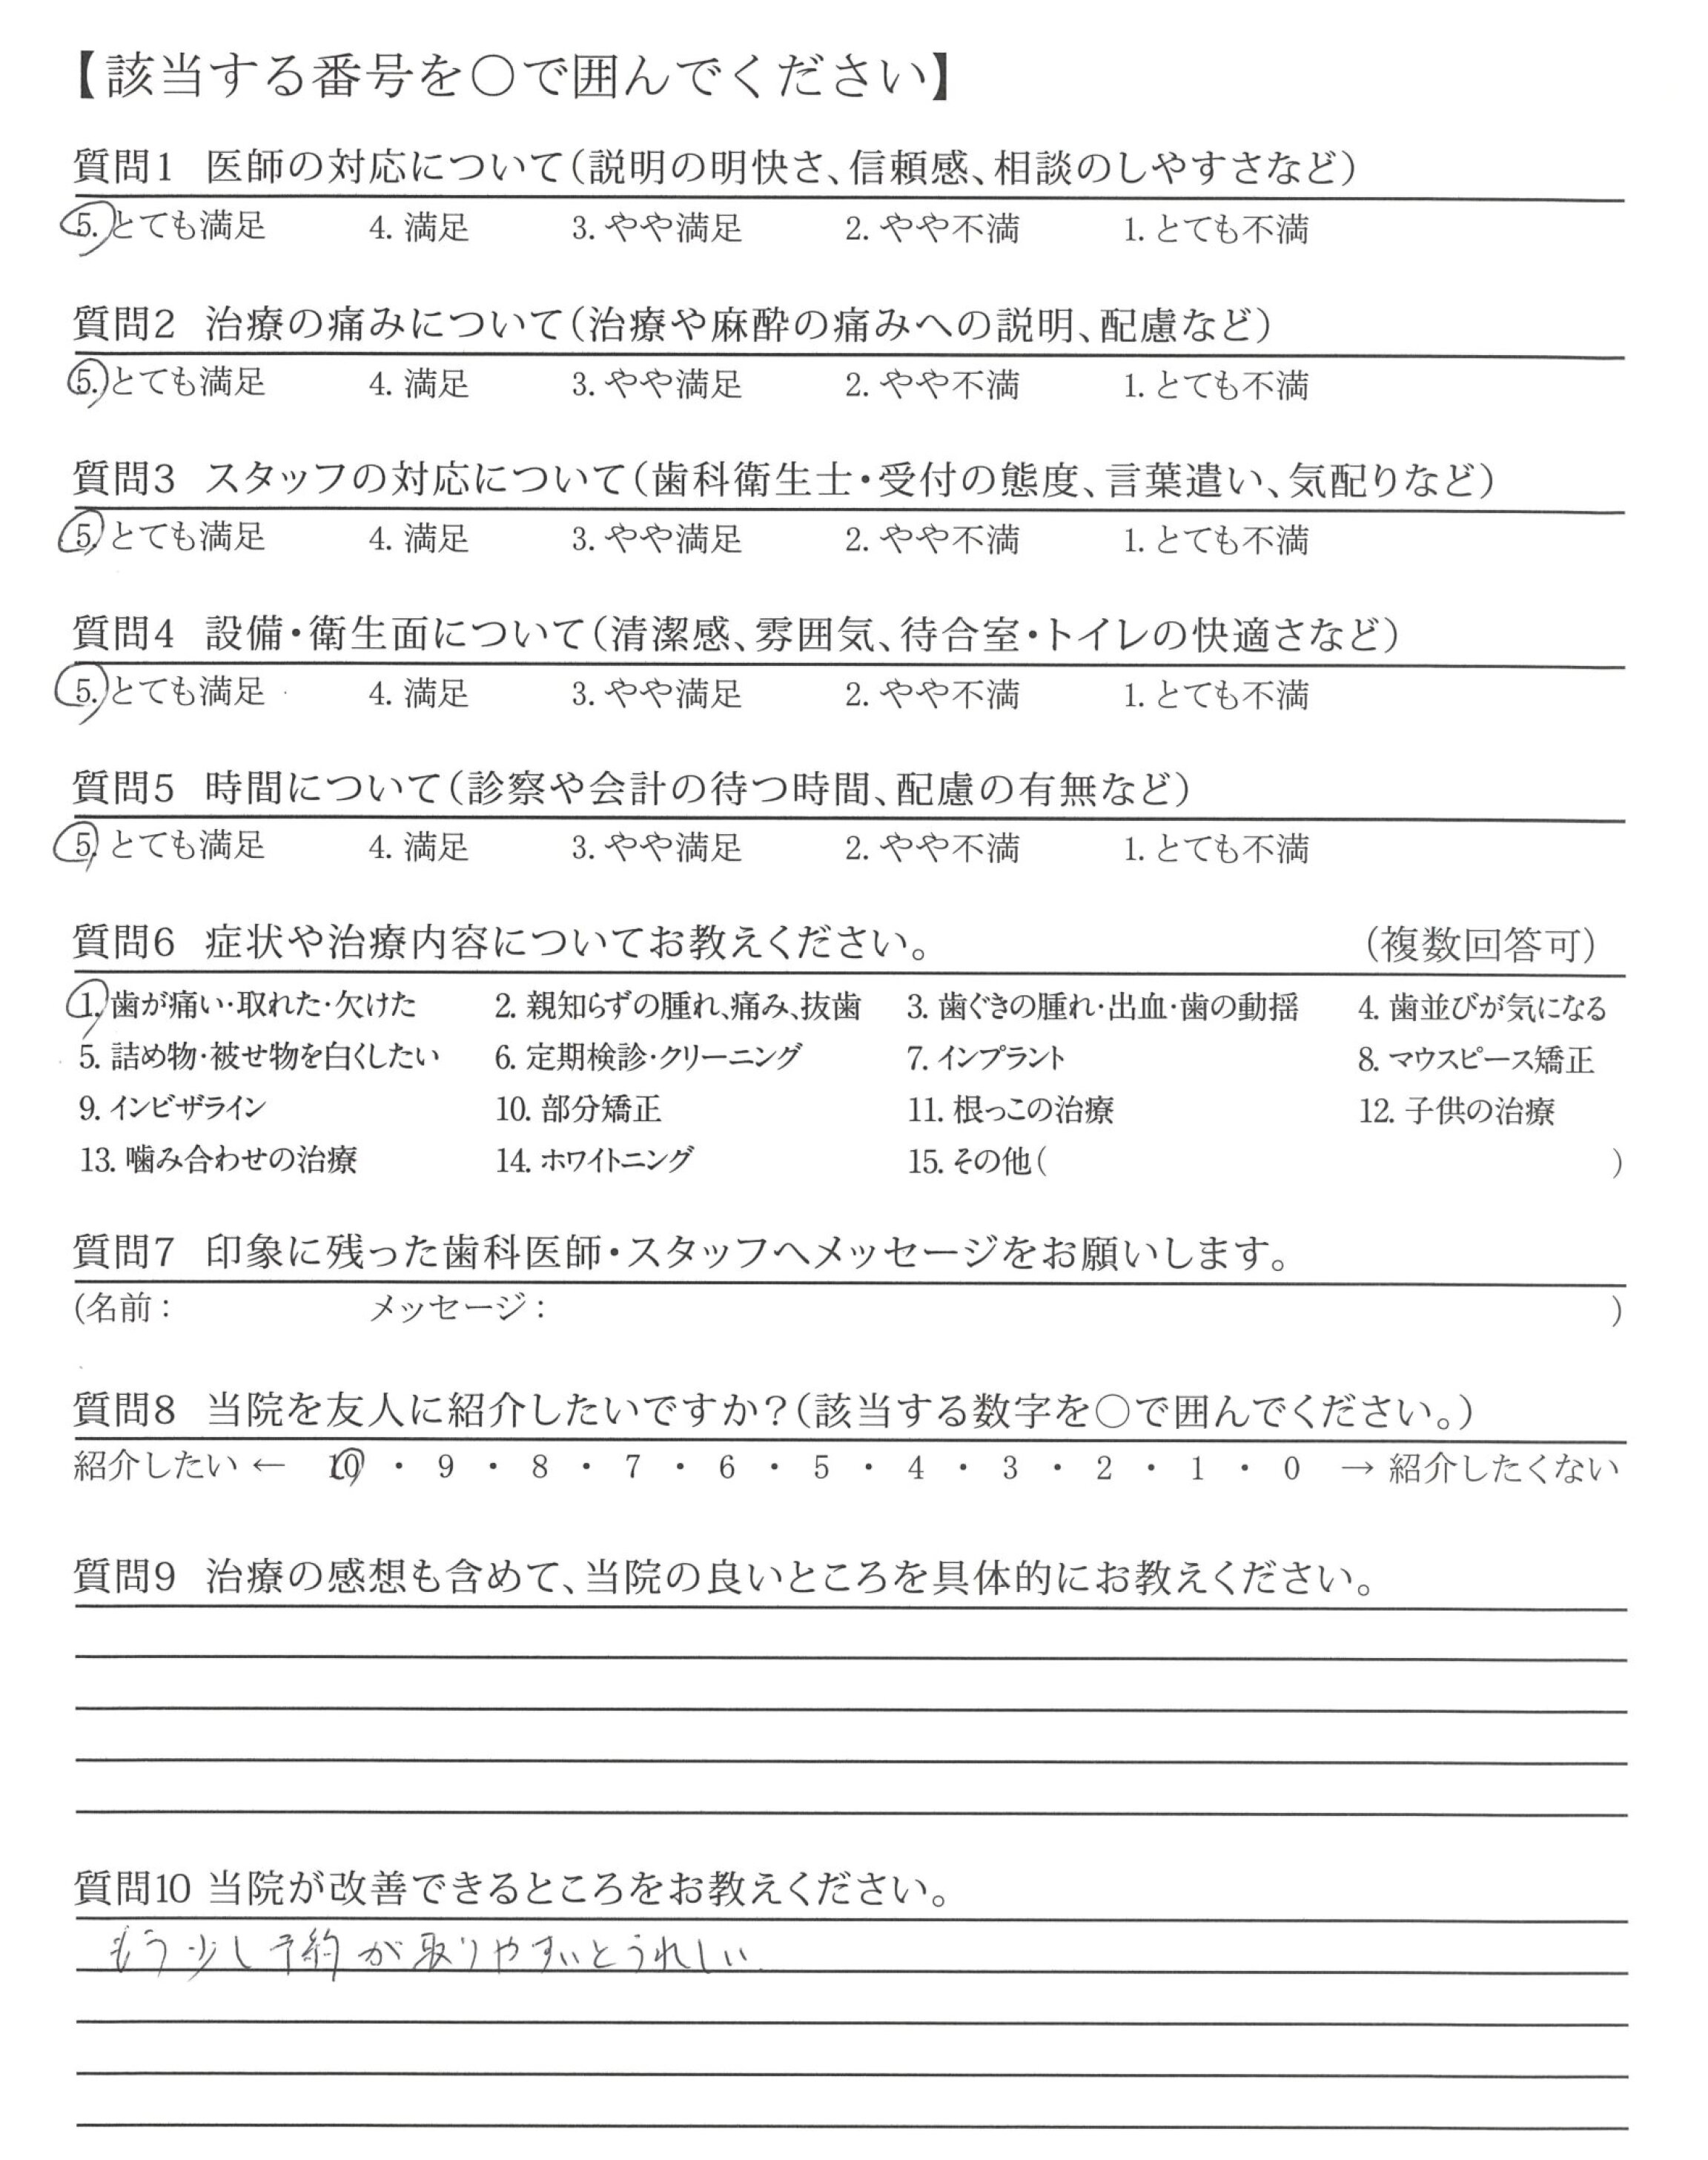 【該当する番号を〇で囲んでください】
質問1 医師の対応について(説明の明快さ、信頼感、相談のしやすさなど)
5. とても満足 4. 満足 3. やや満足 2. やや不満 1. とても不満
質問2 治療の痛みについて(治療や麻酔の痛みへの説明、配慮など)
5. とても満足 4. 満足 3. やや満足 2. やや不満 1. とても不満
質問3 スタッフの対応について(歯科衛生士・受付の態度、言葉遣い、気配りなど)
5. とても満足 4. 満足 3. やや満足 2. やや不満 1. とても不満
質問4 設備・衛生面について(清潔感、雰囲気、待合室・トイレの快適さなど)
5. とても満足 4. 満足 3. やや満足 2. やや不満 1. とても不満
質問5 時間について(診察や会計の待つ時間、配慮の有無など)
5. とても満足 4. 満足 3. やや満足 2. やや不満 1. とても不満
質問6 症状や治療内容についてお教えください。 (複数回答可)
1. 歯が痛い・取れた・欠けた 2. 親知らずの腫れ、痛み、抜歯 3. 歯ぐきの腫れ・出血・歯の動揺 4. 歯並びが気になる
5. 詰め物・被せ物を白くしたい 6. 定期検診・クリーニング 7. インプラント 8. マウスピース矯正
9. インビザライン 10. 部分矯正 11. 根っこの治療 12. 子供の治療
13. 噛み合わせの治療 14. ホワイトニング 15. その他( )
質問7 印象に残った歯科医師・スタッフへメッセージをお願いします。
(名前: メッセージ: )
質問8 当院を友人に紹介したいですか?(該当する数字を〇で囲んでください。)
紹介したい ← 10 ・ 9 ・ 8 ・ 7 ・ 6 ・ 5 ・ 4 ・ 3 ・ 2 ・ 1 ・ 0 → 紹介したくない
質問9 治療の感想も含めて、当院の良いところを具体的にお教えください。
質問10 当院が改善できるところをお教えください。
もう少し予約が取りやすいとうれしい